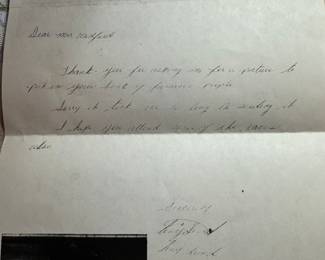 Dear
Thank you for asking me for a picture to
put in your book of famous people
Sorry it took me so long in sending it
I hope you attend some of the races
also
Sincerely